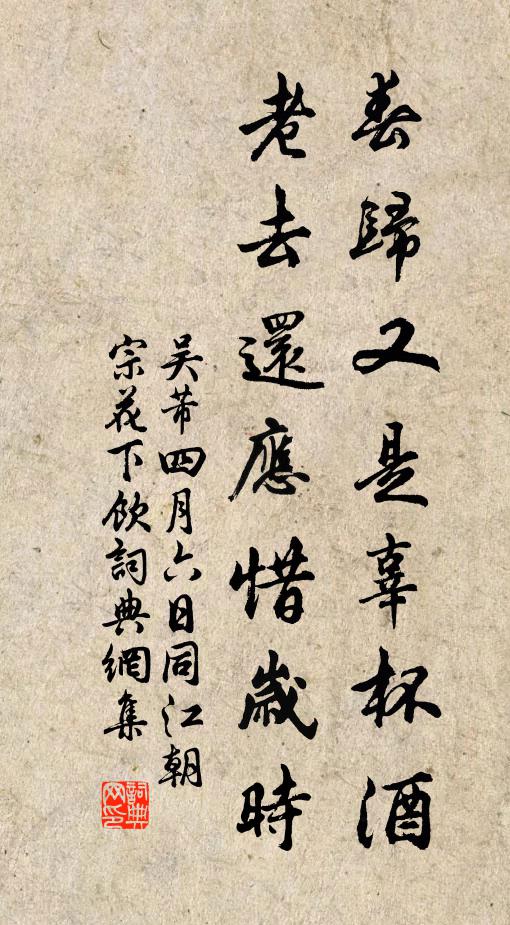 春歸又是辜杯酒
老去還應惜歲時
吳芾四月六日同江朝
宗花下飲詞典網集
詞典
网印